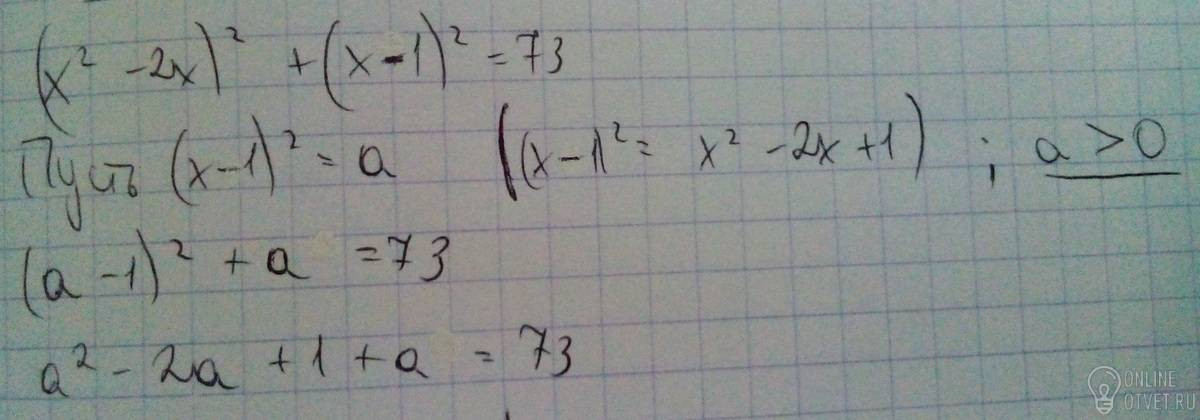 (x² - 2x)² + (x - 1)² = 73
Пусть (x - 1)² = a ((x - 1)² = x² - 2x + 1) ; a > 0
(a - 1)² + a = 73
a² - 2a + 1 + a = 73
ONLINE
OTVET.RU